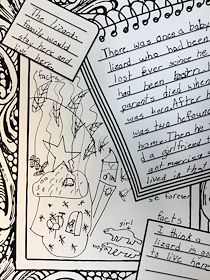 The lizard
family would
stay here and
live here
facts
There was once a baby
lizard who had been
lost ever since he
had been born. h
parents died when
was born. After h
was two he foun
home. Then he
d a girlfriend
got married
lived in that
so forever
girl
forever
facts
I think a
lizard
to live here